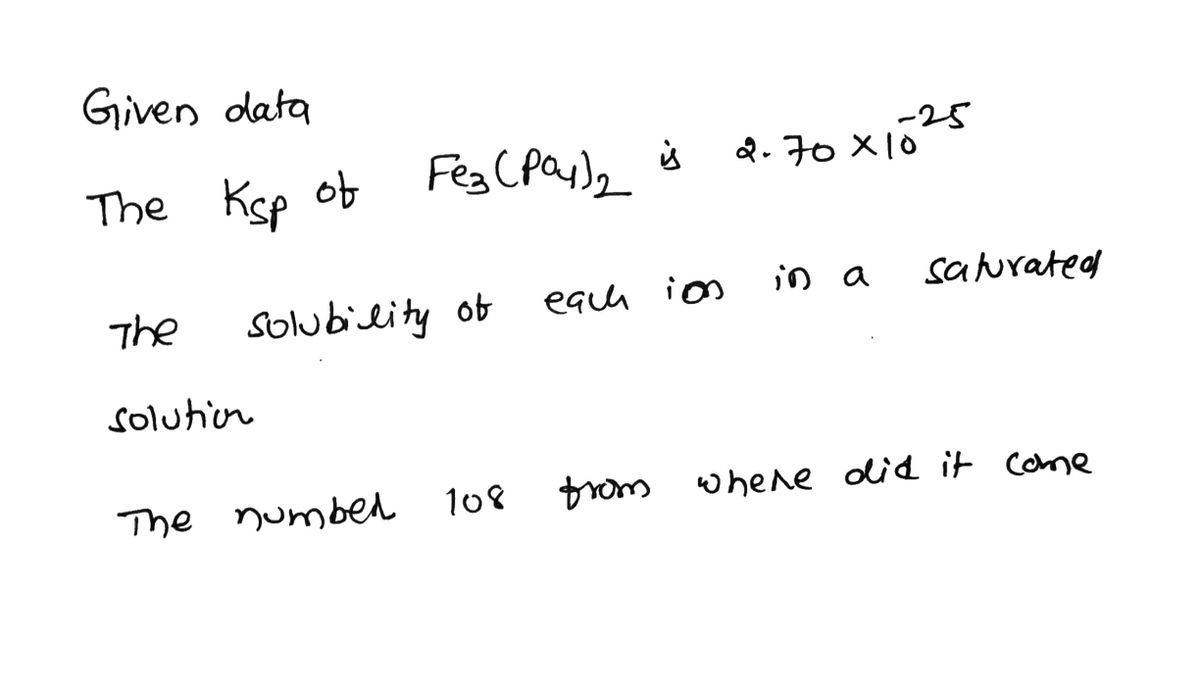 Given data
The Ksp of Fe3(PO4)2 is 2.70 × 10^-25
The solubility of each ion in a saturated
solution
The number 108 from where did it come